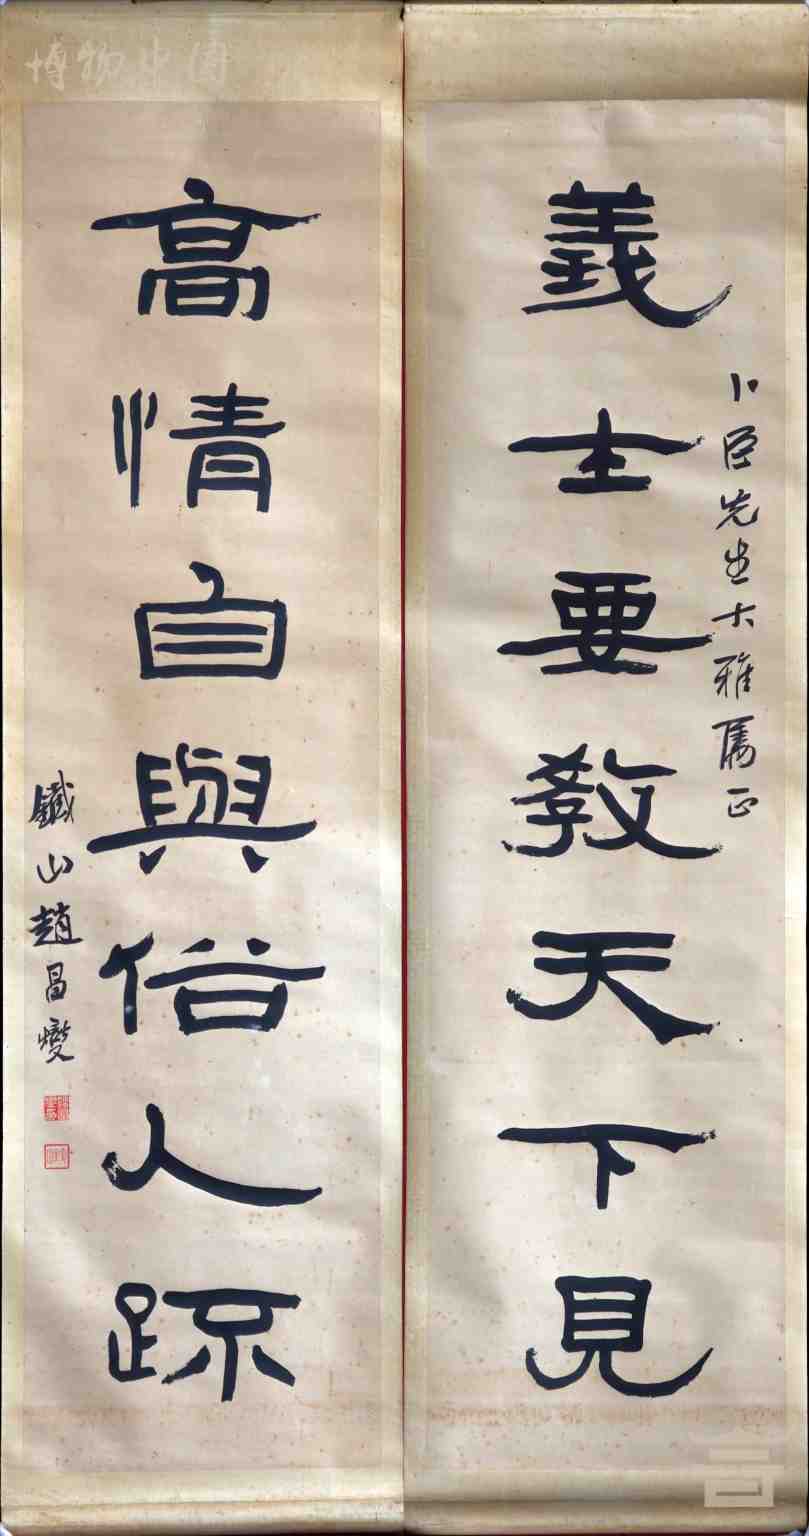 義士要教天下見
卜臣先生大雅屬正
高情自與俗人疏
鐵山趙昌燮
博物中国